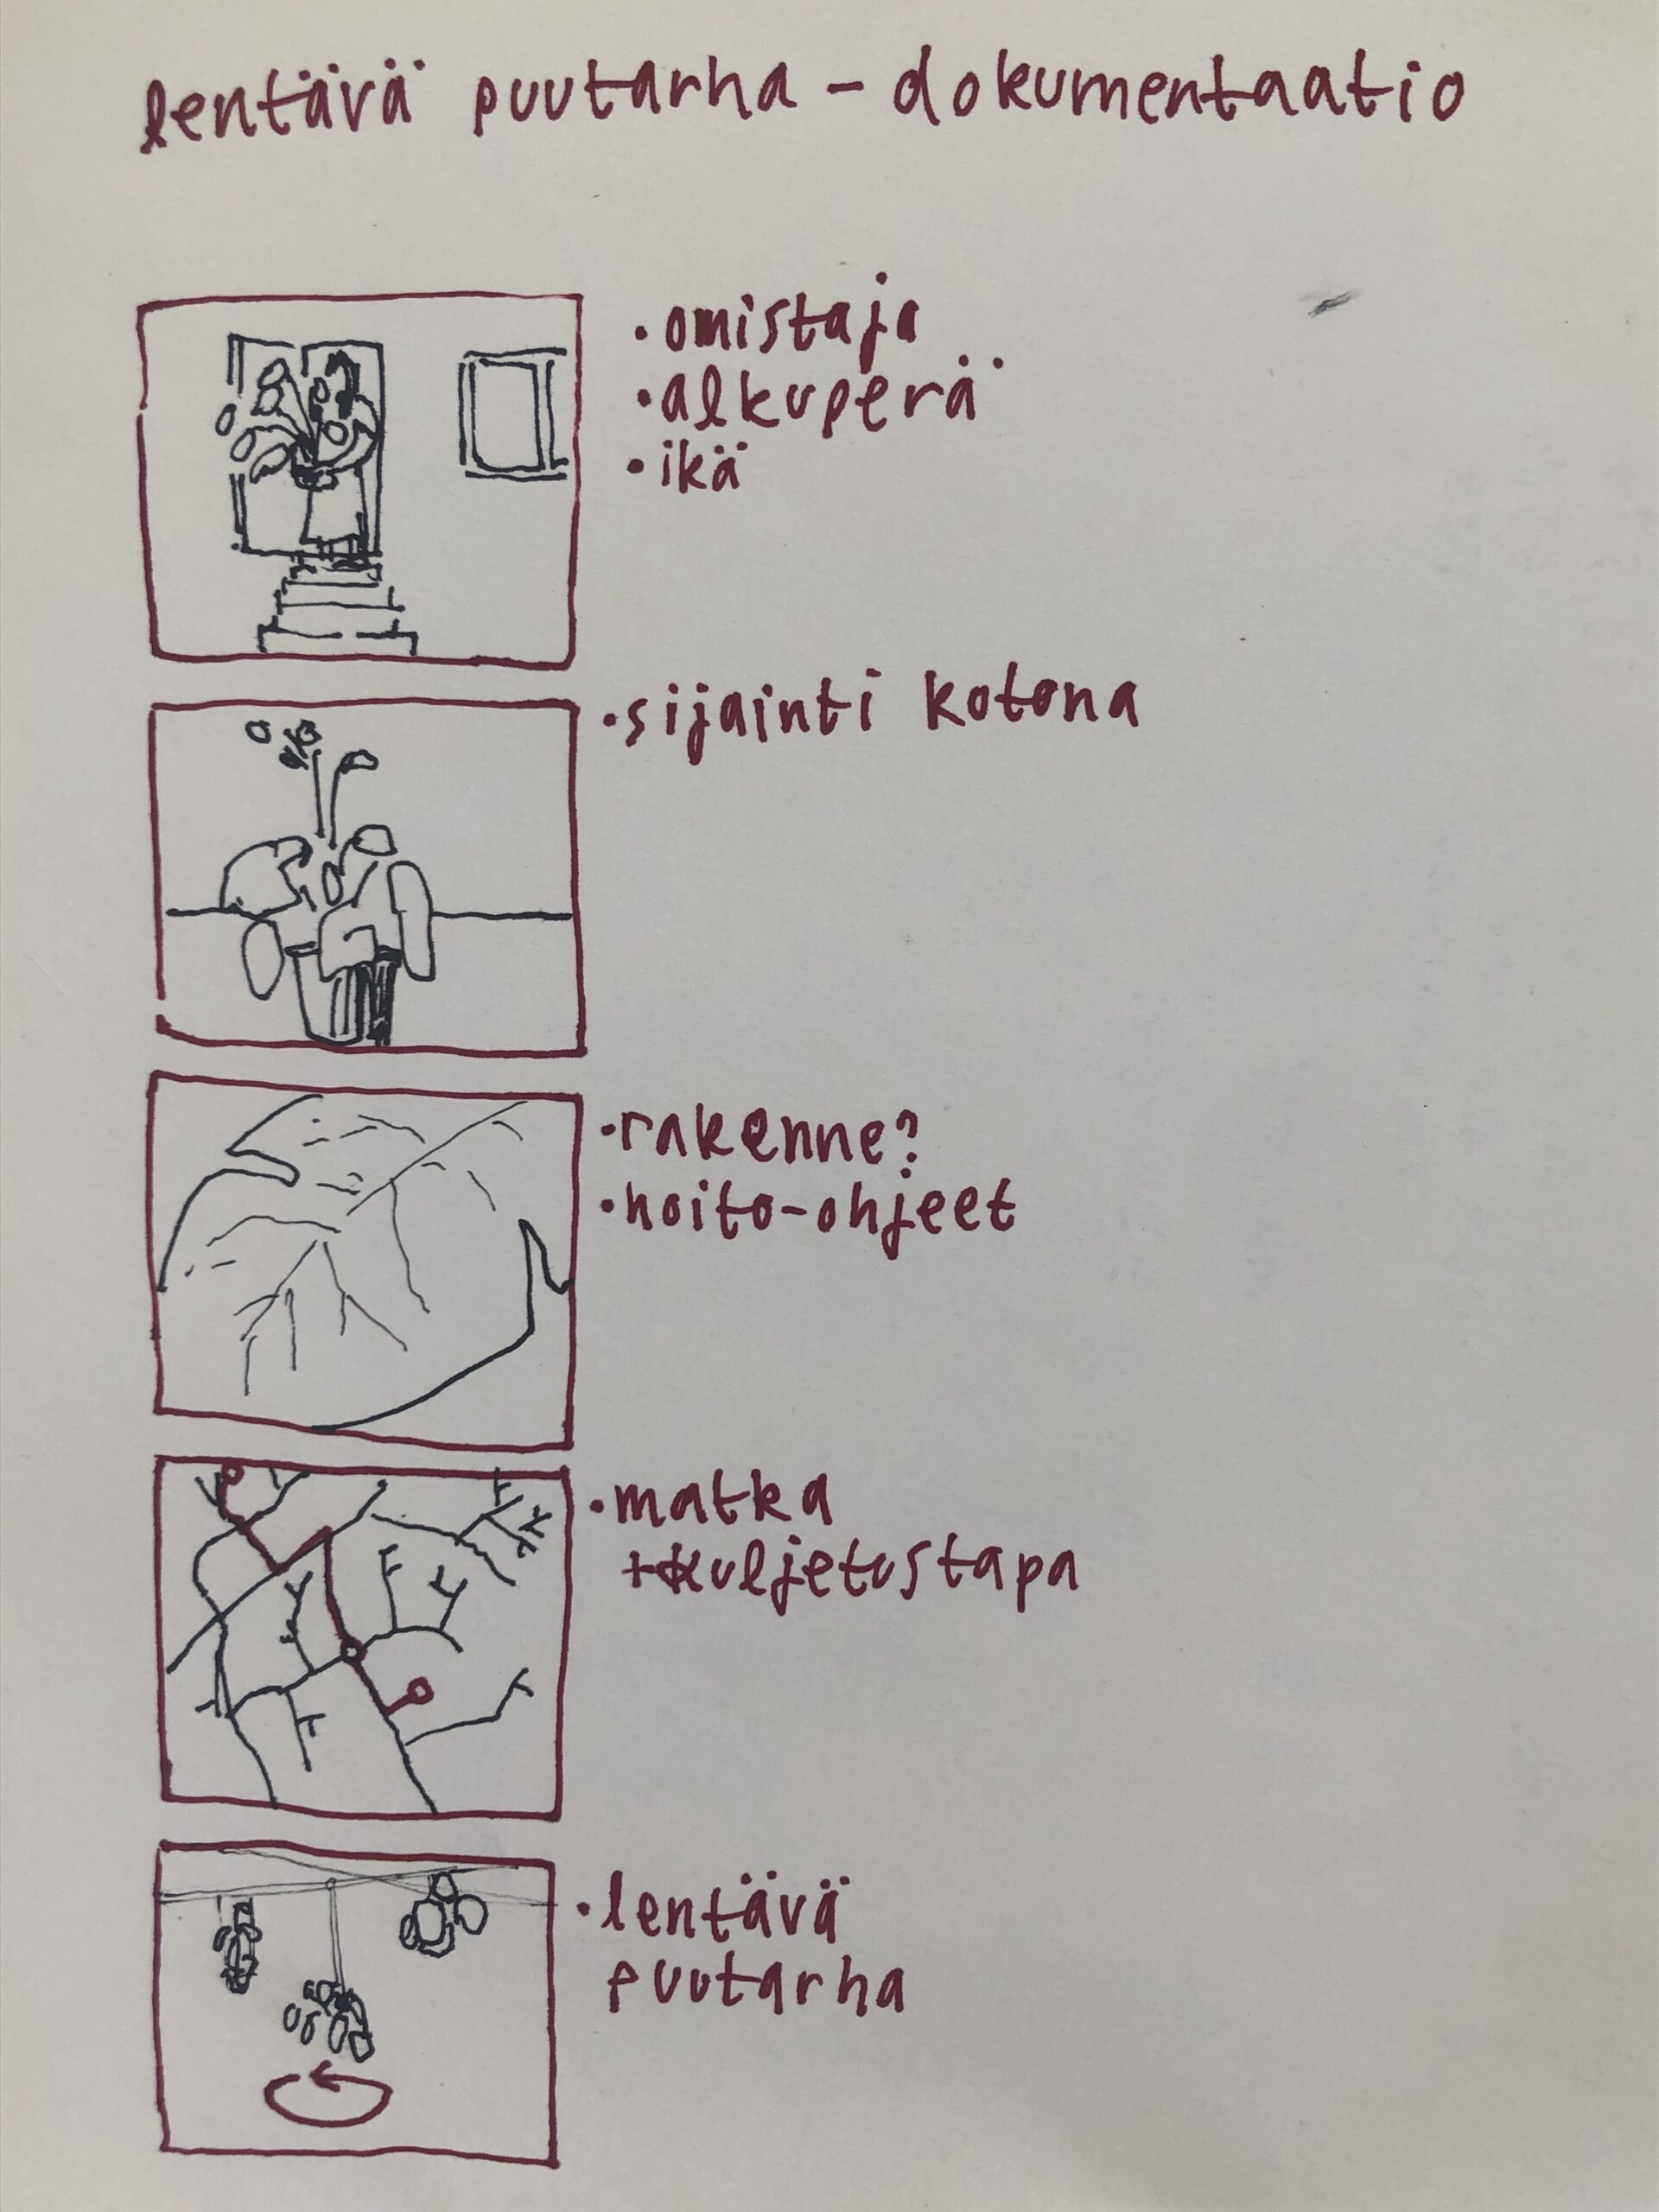 lentävä puutarha - dokumentaatio
• omistaja
• alkuperä
• ikä
• sijainti kotona
• rakenne?
• hoito-ohjeet
• matka
+ kuljetustapa
• lentävä
puutarha